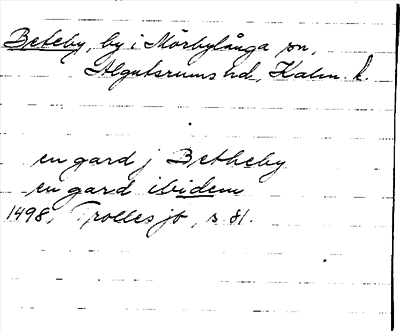 Beteby, by i Mörbylånga sn,
Algutsrums hd, Kalm. l.
en gard j Betheby
en gard ibidem
1498, Trolles jb, s 81.